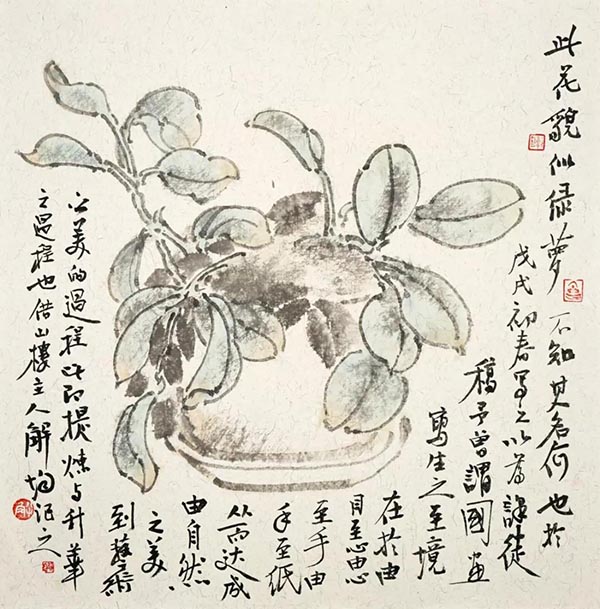 此花貌似绿萝不知其名何也於
戊戌初春写之以为課徒
稿予曾謂國畫
寫生之至境
在於由
目至心由心
至手由
手至紙
从而达成
由自然
之美
到藝術
之美的過程此即提煉与升華
之過程也借山樓主人解记之